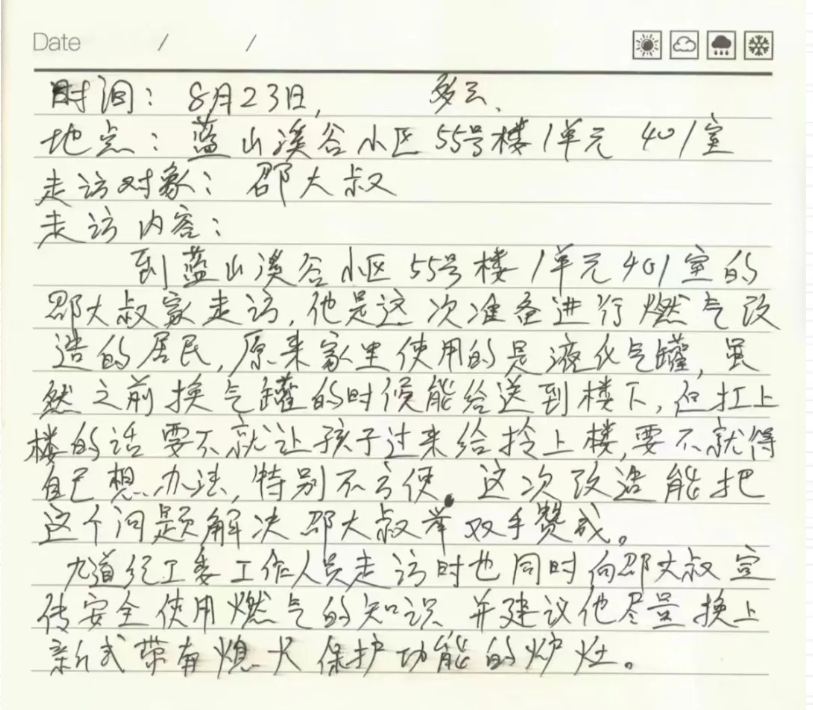 Date / /
时间：8月23日，多云、
地点：蓝山溪谷小区55号楼1单元401室
走访对象：邵大叔
走访内容：
到蓝山溪谷小区55号楼1单元401室的
邵大叔家走访，他是这次准备进行燃气改
造的居民，原来家里使用的是液化气罐，虽
然之前换气罐的时候能给送到楼下，但扛上
楼的话要不就让孩子过来给拎上楼，要不就得
自己想办法，特别不方便。这次改造能把
这个问题解决邵大叔举双手赞成。
九道纪工委工作人员走访时也同时向邵大叔宣
传安全使用燃气的知识，并建议他尽量换上
新式带有熄火保护功能的炉灶。